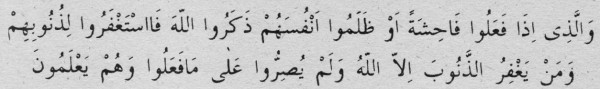 وَالَّذِى اِذَا فَعَلُوا فَاحِشَةً اَوْ ظَلَمُوا اَنْفُسَهُمْ ذَكَرُوا اللّٰهَ فَااسْتَغْفَرُوا لِذُنُوبِهِمْ
وَمَنْ يَغْفِرُ الذَّنُوبَ اِلاَّ اللّٰهُ وَلَمْ يُصِرُّوا عَلٰى مَافَعَلُوا وَهُمْ يَعْلَمُونَ